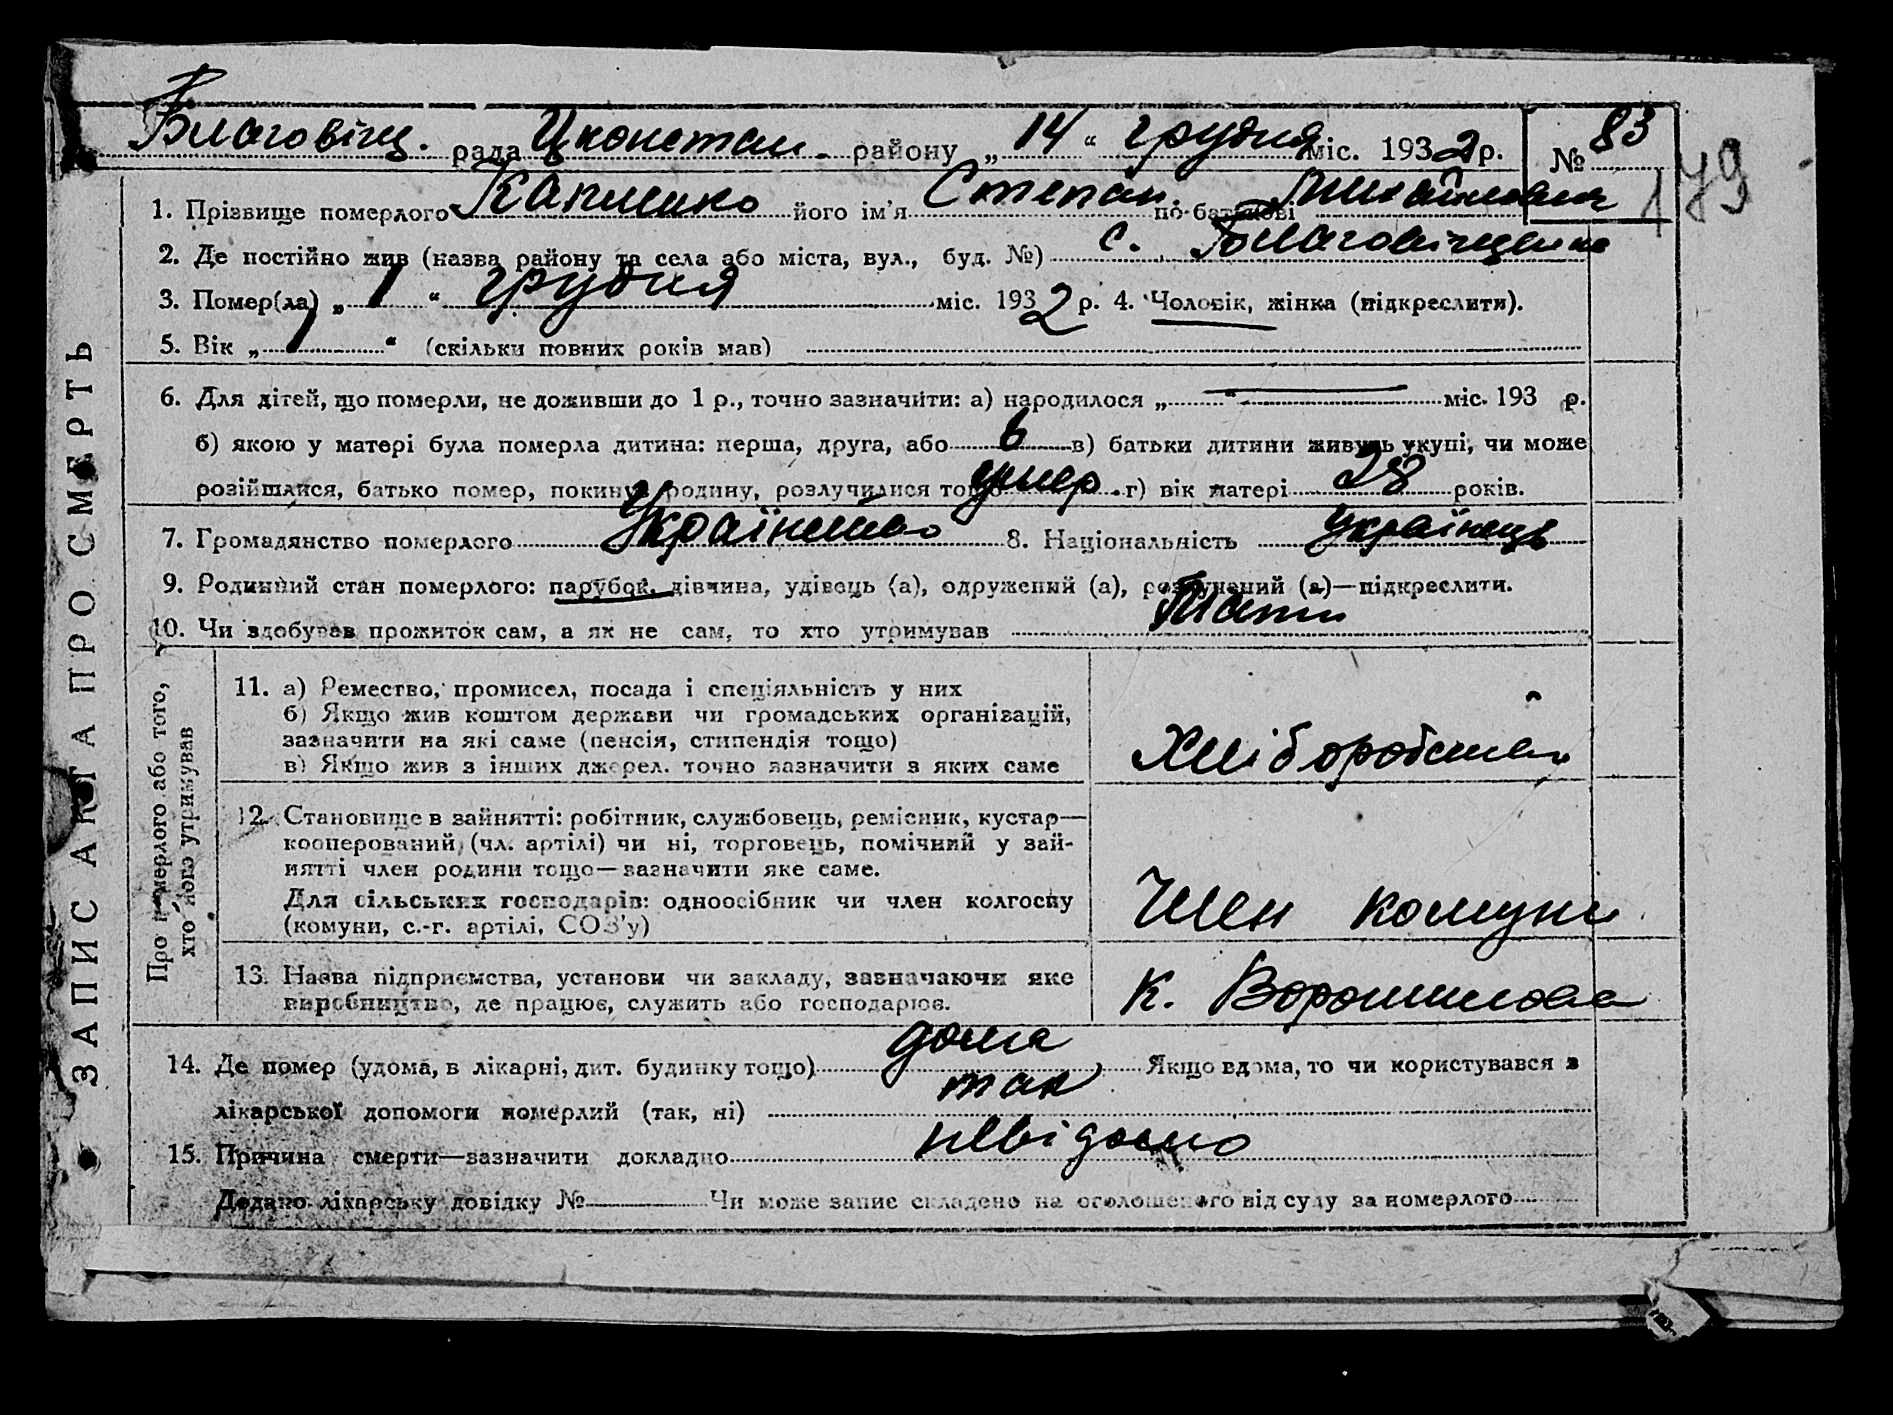 Благовіщ. рада Цконстан. району „ 14 “ грудня міс. 1932 р. № 83
179
1. Прізвище померлого Капленко його ім'я Степан. по-батькові Михайлович
2. Де постійно жив (назва району та села або міста, вул., буд. №) с. Благовіщенка
3. Помер(ла) „ 1 “ грудня міс. 1932 р. 4. Чоловік, жінка (підкреслити).
5. Вік „ 1 “ (скільки повних років мав)
6. Для дітей, що померли, не доживши до 1 р., точно зазначити: а) народилося „ “ міс. 193 р.
б) якою у матері була померла дитина: перша, друга, або 6 в) батьки дитини живуть укупі, чи може
розійшлися, батько помер, покинув родину, розлучилися тощо умер г) вік матері 28 років.
7. Громадянство померлого Українство 8. Національність українець
9. Родинний стан померлого: парубок, дівчина, удівець (а), одружений (а), розлучений (а)—підкреслити.
10. Чи здобував прожиток сам, а як не сам, то хто утримував Мати
ЗАПИС АКТА ПРО СМЕРТЬ
Про померлого або того, хто його утримував
11. а) Ремество, промисел, посада і спеціяльність у них
б) Якщо жив коштом держави чи громадських організацій,
зазначити на які саме (пенсія, стипендія тощо)
в) Якщо жив з інших джерел. точно зазначити з яких саме
Хліборобства
12. Становище в зайнятті: робітник, службовець, ремісник, кустар—
кооперований (чл. артілі) чи ні, торговець, помічний у зай-
нятті член родини тощо—зазначити яке саме.
Для сільських господарів: одноосібник чи член колгоспу
(комуни, с.-г. артілі, СОЗ'у)
Член комуни
13. Назва підприємства, установи чи закладу, зазначаючи яке
виробництво, де працює, служить або господарює.
К. Ворошилова
14. Де помер (удома, в лікарні, дит. будинку тощо) дома Якщо вдома, то чи користувався з
лікарської допомоги померлий (так, ні) так
15. Причина смерти—зазначити докладно невідомо
Додано лікарську довідку № Чи може запис складено на оголошеного від суду за померлого